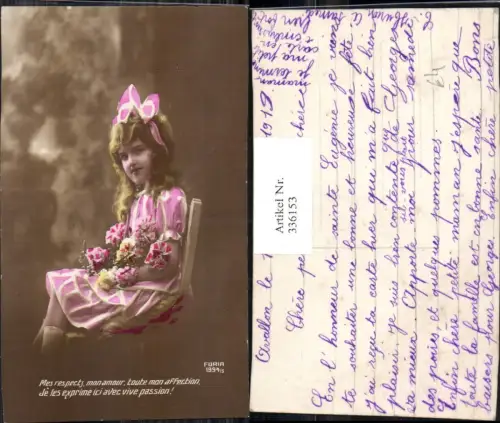 FURIA
1894/2
Mes respects, mon amour, toute mon affection,
Je les exprime ici avec vive passion!
Artikel Nr.
336153
Avallon le 1 1919
Chère pe chérie
En l'honneur de sainte Eugénie je viens
te souhaiter une bonne et heureuse fête
J'ai reçu ta carte hier qui m'a fait bien
plaisir je suis bien contente que Georges
va mieux Apporte moi pour samedi
des poires et quelques pommes.
Enfin chère petite maman J'espère que
toute la famille est en bonne santé Bons
baisers pour Georges Enfin chère petite
maman je termine
ma carte en